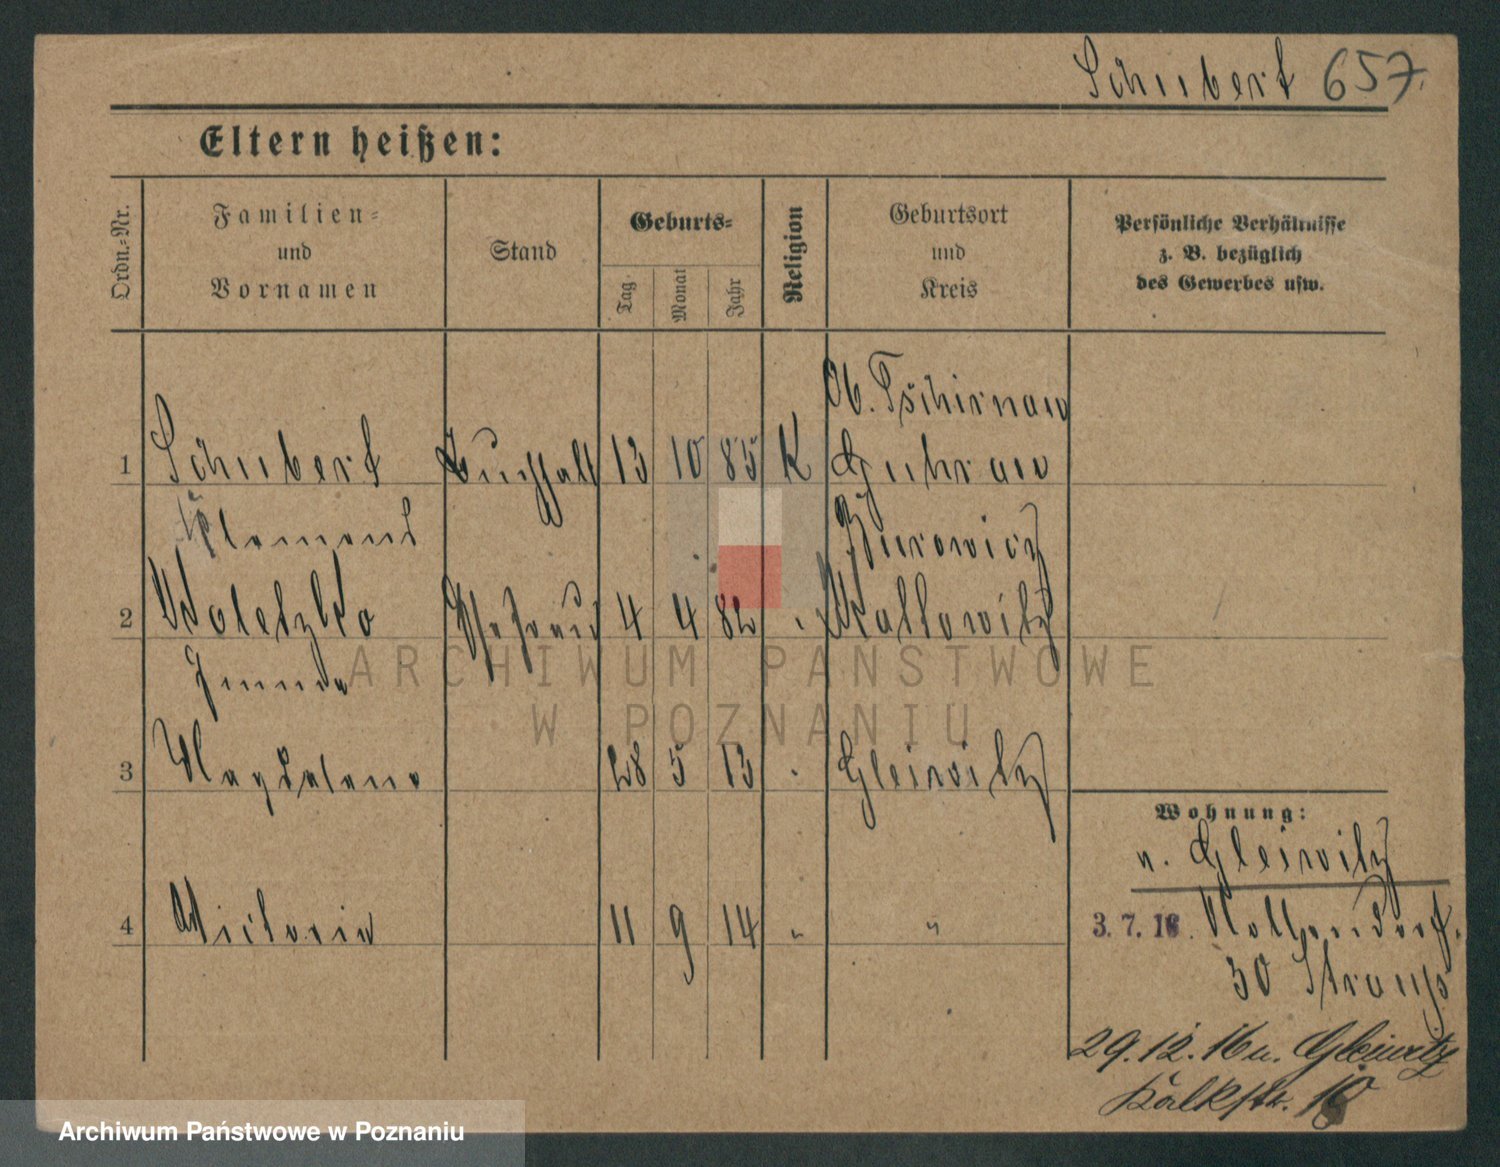 Schubert 657.
Eltern heißen:
Ordn.-Nr.
Familien-
und
Vornamen
Stand
Geburts-
Tag
Monat
Jahr
Religion
Geburtsort
und
Kreis
Persönliche Verhältnisse
z. B. bezüglich
des Gewerbes usw.
Ob. Tschirnau
1 Schubert Buchhalt 13 10 85 K Guhrau
Klemens
2 Woletzko Ehefrau 4 4 82 " Kattowitz
Emma
3 Magdalena 28 5 13 " Gleiwitz
Wohnung:
n. Gleiwitz
4 Victoria 11 9 14 " "
3. 7. 16. Nollendorf.
30 Strauß
29.12.16 n. Gleiwitz
10
ARCHIWUM PAŃSTWOWE
W POZNANIU
Archiwum Państwowe w Poznaniu